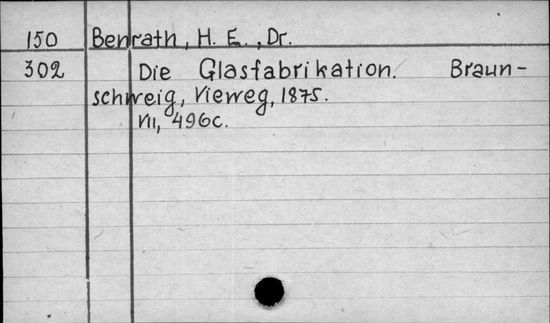 150 Benrath, H. E., Dr.
302 Die Glasfabrikation. Braun-
schweig, Vieweg, 1875.
VII, 496c.